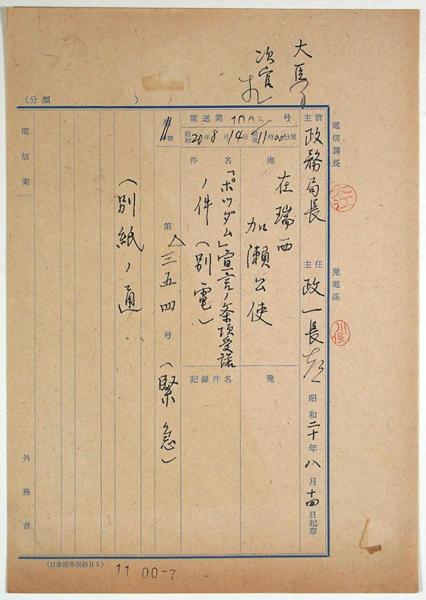 大臣
次官
(分類 )
電信課長
発電係
主管 政務局長
主任 政一長
昭和二十年八月十四日起草
電送第 号
昭和20年8月14日 11時00分発
宛
在瑞西
加瀬公使
発
件名
「ポツダム」宣言ノ条項受諾
ノ件(別電)
記録件名
第 三五四号 (緊急)
(別紙ノ通
電信案
外務省
(日本標準規格B5)
11 00-7